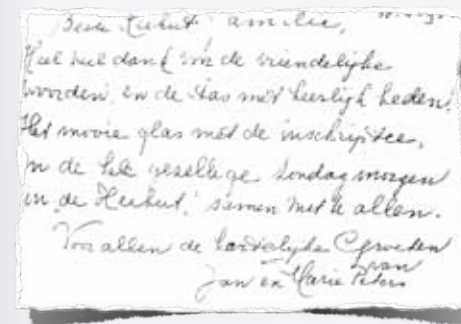 Beste "Heihut" familie,
Heel veel dank voor de vriendelijke
woorden, en de tas met heerlijkheden.
Het mooie glas met de inschriptie,
en de hele gezellige Zondag morgen
in "de Heihut," samen met U allen.
Voor allen de hartelijke Groeten
van
Jan en Marie Peters